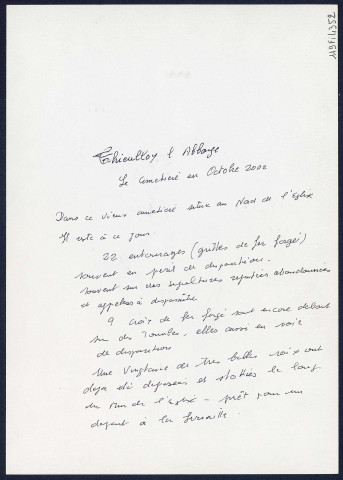 119FI4352
Thieulloy l'Abbaye
Le cimetière en Octobre 2002
Dans ce vieux cimetière situé au Nord de l'Eglise
Il reste à ce jour
22 entourages (grilles de fer forgé)
souvent en péril de disparition.
souvent sur des sépultures réputées abandonnées
et appelées à disparaître
9 croix de fer forgé sont encore debout
sur des tombes, elles aussi en voie
de disparition
Une vingtaine de très belles croix ont
déjà été déposées et stockées le long
du mur de l'Eglise - prêt pour un
départ à la ferraille.